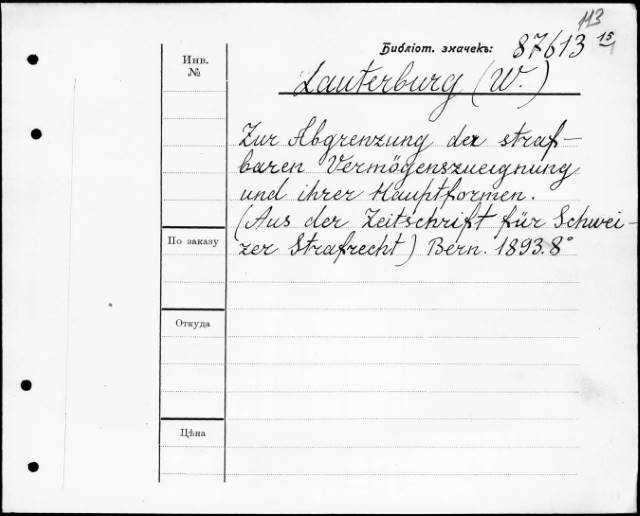 113
Библіот. значекъ: 87613 15/1
Инв.
№
Lauterburg (W.)
Zur Abgrenzung der straf-
baren Vermögenszueignung
und ihrer Hauptformen.
(Aus der Zeitschrift für Schwei-
zer Strafrecht) Bern. 1893. 8°
По заказу
Откуда
Цѣна